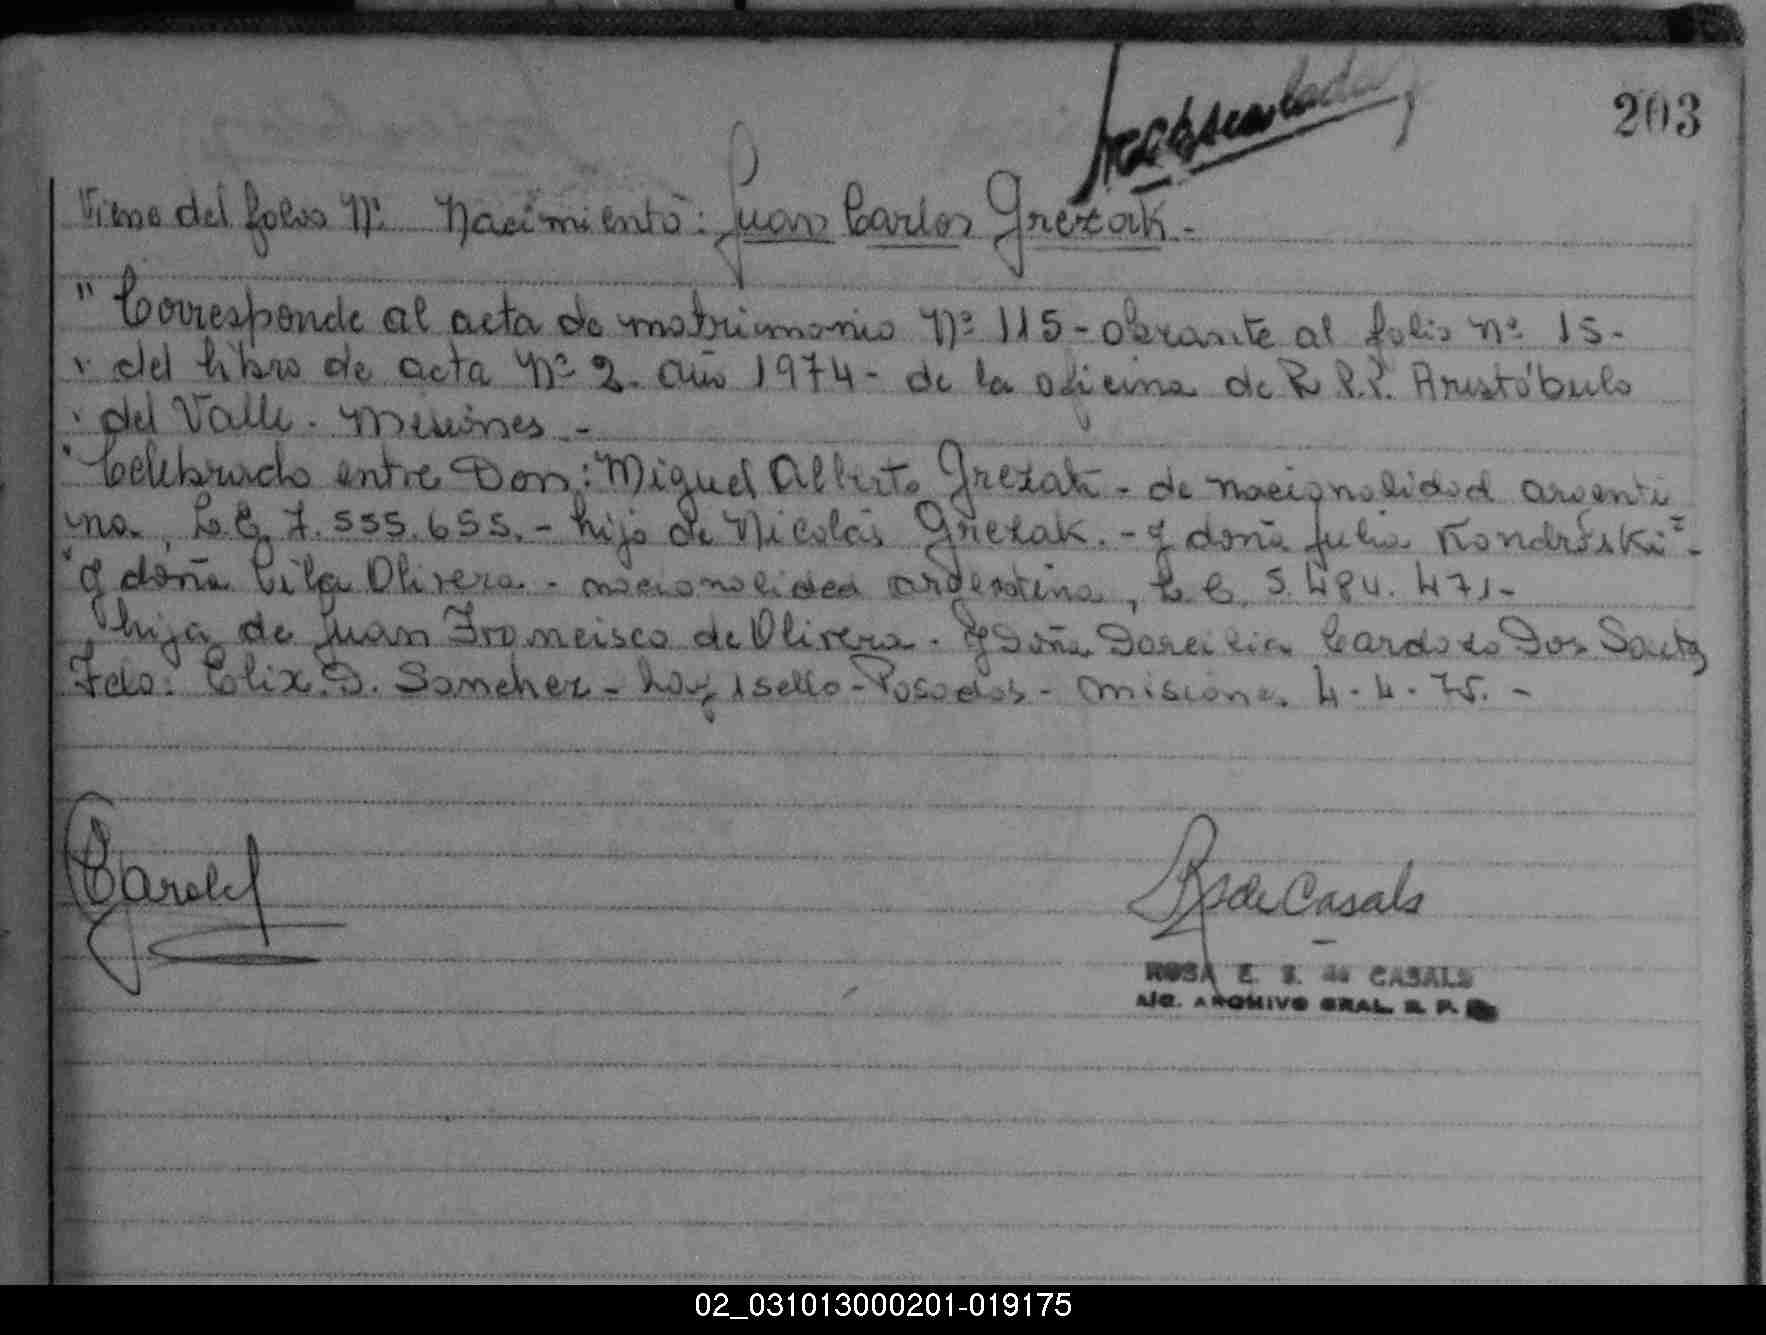 203
Viene del folio Nº Nacimiento: Juan Carlos Grezak.-
" Corresponde al acta de matrimonio Nº 115 - obrante al folio nº 15 -
" del libro de acta Nº 2. año 1974 - de la oficina de R.P.P. Aristóbulo
" del Valle. Misiones.-
" Celebrado entre Don: Miguel Alberto Grezak - de nacionalidad argenti
na, L.E. 7.555.655.- hijo de Nicolás Grezak.- y doña Julia Kondróski -
" y doña Cila Olivera - nacionalidad argentina, L.C. 5.484.471-
hija de Juan Francisco de Olivera. y Doña Dorcilia Cardozo Dos Santos
Fdo: Elix.D. Sanchez - hay 1 sello - Posadas - Misiones 4.4.75.-
de Casals
ROSA E. S. de CASALS
A/C. ARCHIVO GRAL. R. P.
02_031013000201-019175